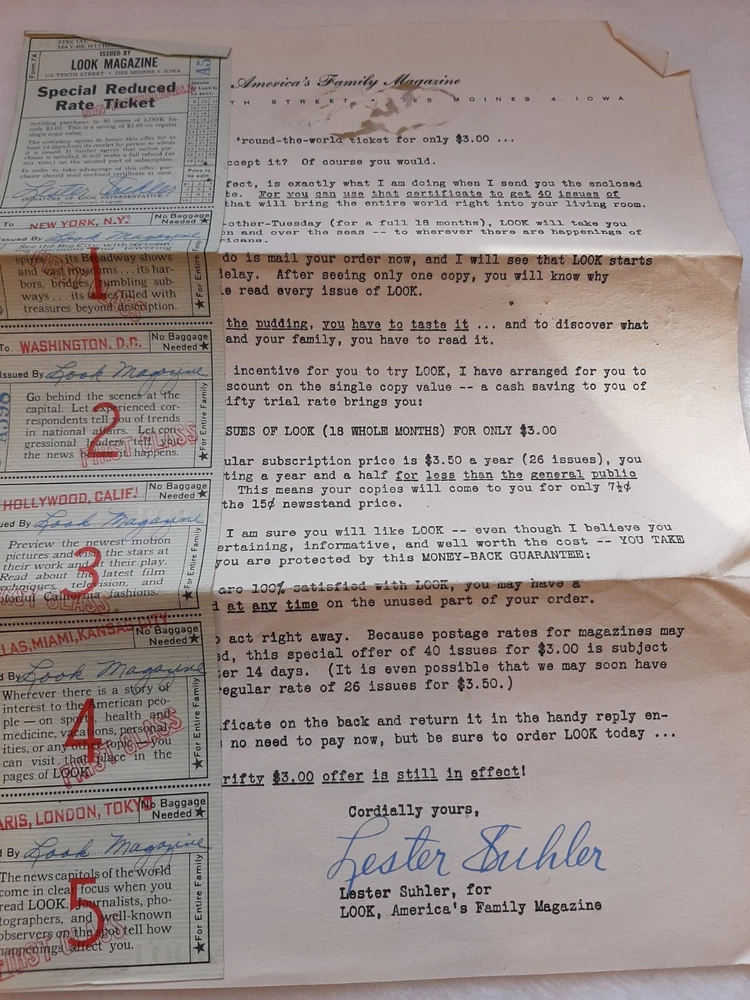 SPECIAL
MAY BE WITH
Form 7A
ISSUED BY
LOOK MAGAZINE
TENTH STREET • DES MOINES, IOWA
Special Reduced
Rate Ticket
entitling purchaser to 40 issues of LOOK for
only $3.00. This is a saving of $3.00 on regular
single copy value.
The company agrees to honor this offer for at
least 14 days from its receipt by person to whom
it is issued. It further agrees that unless pur-
chaser is satisfied, it will make a full refund (at
any time) on the unused part of subscription.
In order to take advantage of this offer, pur-
chaser should mail enclosed certificate at once.
Lester Suhler
SIGNATURE OF LOOK REPRESENTATIVE
To NEW YORK, N.Y.
No Baggage
Needed ★
Issued By Look Magazine
See the Big City with its
its Broadway shows
and vast museums...its har-
bors, bridges, rumbling sub-
ways...its filled with
treasures beyond description.
1
★ For Entire Family
To WASHINGTON, D.C.
No Baggage
Needed ★
Issued By Look Magazine
Go behind the scenes at the
capital. Let experienced cor-
respondents tell you of trends
in national affairs. Let con-
gressional leaders tell you
the news before it happens.
2
FIRST CLASS
★ For Entire Family
A598
HOLLYWOOD, CALIF.
No Baggage
Needed ★
ued By Look Magazine
Preview the newest motion
pictures and visit the stars at
their work and at their play.
Read about the latest film
techniques, television, and
colorful California fashions.
3
CLASS
★ For Entire Family
LAS, MIAMI, KANSAS CITY
No Baggage
Needed ★
d By Look Magazine
Wherever there is a story of
interest to the American peo-
ple — on sports, health and
medicine, vacations, personal-
ities, or any other topic — you
can visit that place in the
pages of LOOK.
4
FIRST CLASS
★ For Entire Family
ARIS, LONDON, TOKYO
No Baggage
Needed ★
d By Look Magazine
The news capitols of the world
come in clear focus when you
read LOOK. Journalists, pho-
tographers, and well-known
observers on the spot tell how
happenings affect you.
5
FIRST CLASS
★ For Entire Family
America's Family Magazine
TH STREET • DES MOINES 4, IOWA
'round-the-world ticket for only $3.00 ...
ccept it? Of course you would.
fect, is exactly what I am doing when I send you the enclosed
te. For you can use that certificate to get 40 issues of
that will bring the entire world right into your living room.
-other-Tuesday (for a full 18 months), LOOK will take you
on and over the seas -- to wherever there are happenings of
icans.
do is mail your order now, and I will see that LOOK starts
delay. After seeing only one copy, you will know why
e read every issue of LOOK.
the pudding, you have to taste it ... and to discover what
and your family, you have to read it.
incentive for you to try LOOK, I have arranged for you to
scount on the single copy value -- a cash saving to you of
ifty trial rate brings you:
SUES OF LOOK (18 WHOLE MONTHS) FOR ONLY $3.00
ular subscription price is $3.50 a year (26 issues), you
ting a year and a half for less than the general public
This means your copies will come to you for only 7½¢
the 15¢ newsstand price.
I am sure you will like LOOK -- even though I believe you
ertaining, informative, and well worth the cost -- YOU TAKE
you are protected by this MONEY-BACK GUARANTEE:
are 100% satisfied with LOOK, you may have a
d at any time on the unused part of your order.
o act right away. Because postage rates for magazines may
ed, this special offer of 40 issues for $3.00 is subject
ter 14 days. (It is even possible that we may soon have
egular rate of 26 issues for $3.50.)
ificate on the back and return it in the handy reply en-
no need to pay now, but be sure to order LOOK today ...
rifty $3.00 offer is still in effect!
Cordially yours,
Lester Suhler
Lester Suhler, for
LOOK, America's Family Magazine